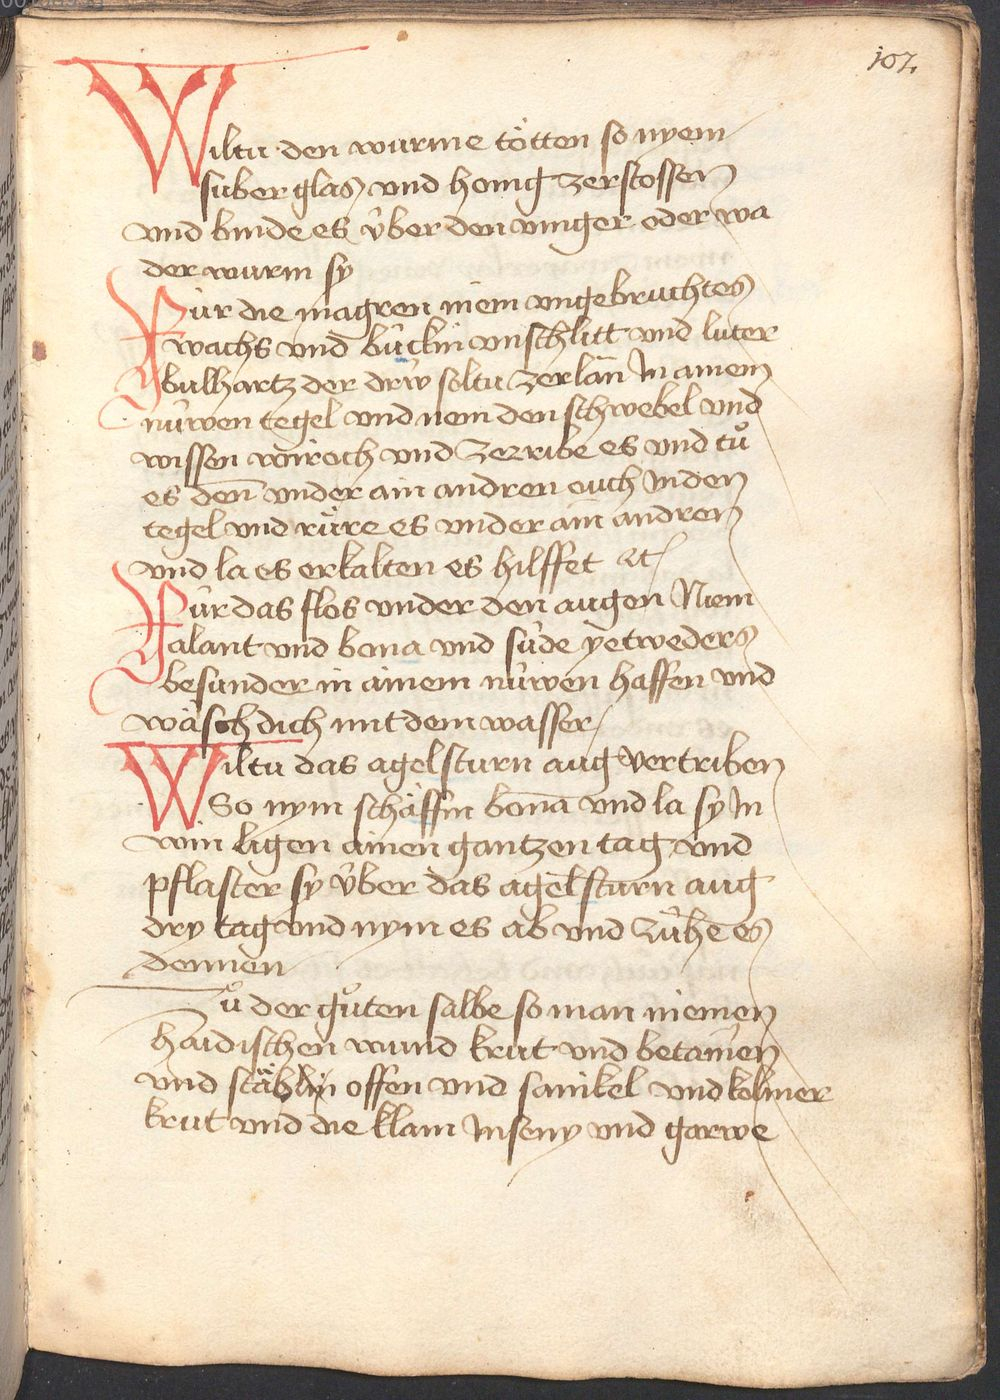 107.
Wiltu den wurme tötten so nyem
suber glas und honig zerstossen
und binde es über den vinger oder wa
der wurm sy
Für die magren niem ungebruchtes
wachs und bückin unschlitt und luter
bulhartz der drÿ soltu zerlän In ainem
nüwen tegel und nem den schwebel und
wissen wiroch und zerribe es und tů
es den̄ under ain andren ouch In den
tegel und rüre es under ain andren
und la es erkalten es hilffet etc
Für das flos under den augen Niem
alant und bona und süde yetweders
besunder in ainem nüwen haffen und
wäsch dich mit dem wasser
Wiltu das agelsturn aug vertriben
So nym schäffin bona und la sy In
win ligen ainen gantzen tag und
pflaster sy über das agelsturn aug
dry tag und nym es ab und zühe es
dennen
ů der gůten salbe so man niemen
haidischen wund krut und betanien
und offen und sanikel und kolmer
krut und die klain Inseny und garwe